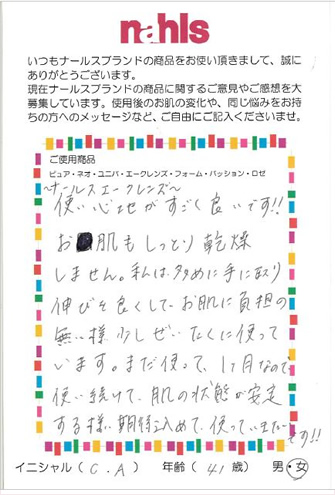 nahls
いつもナールスブランドの商品をお使い頂きまして、誠に
ありがとうございます。
現在ナールスブランドの商品に関するご意見やご感想を大
募集しています。使用後のお肌の変化や、同じ悩みをお持
ちの方へのメッセージなど、ご自由にご記入くださいませ。
ご使用商品
ピュア・ネオ・ユニバ・エークレンズ・フォーム・パッション・ロゼ
~ナールスエークレンズ~
使い心地がすごく良いです!!
お肌もしっとり乾燥
しません。私は多めに手に取り
伸びを良くして、お肌に負担の
無い様少しぜいたくに使って
います。まだ使って、1ヶ月なので
使い続けて、肌の状態が安定
する様、期待込めて、使っていきたい
です!!
イニシャル(C.A) 年齢(41歳) 男・女